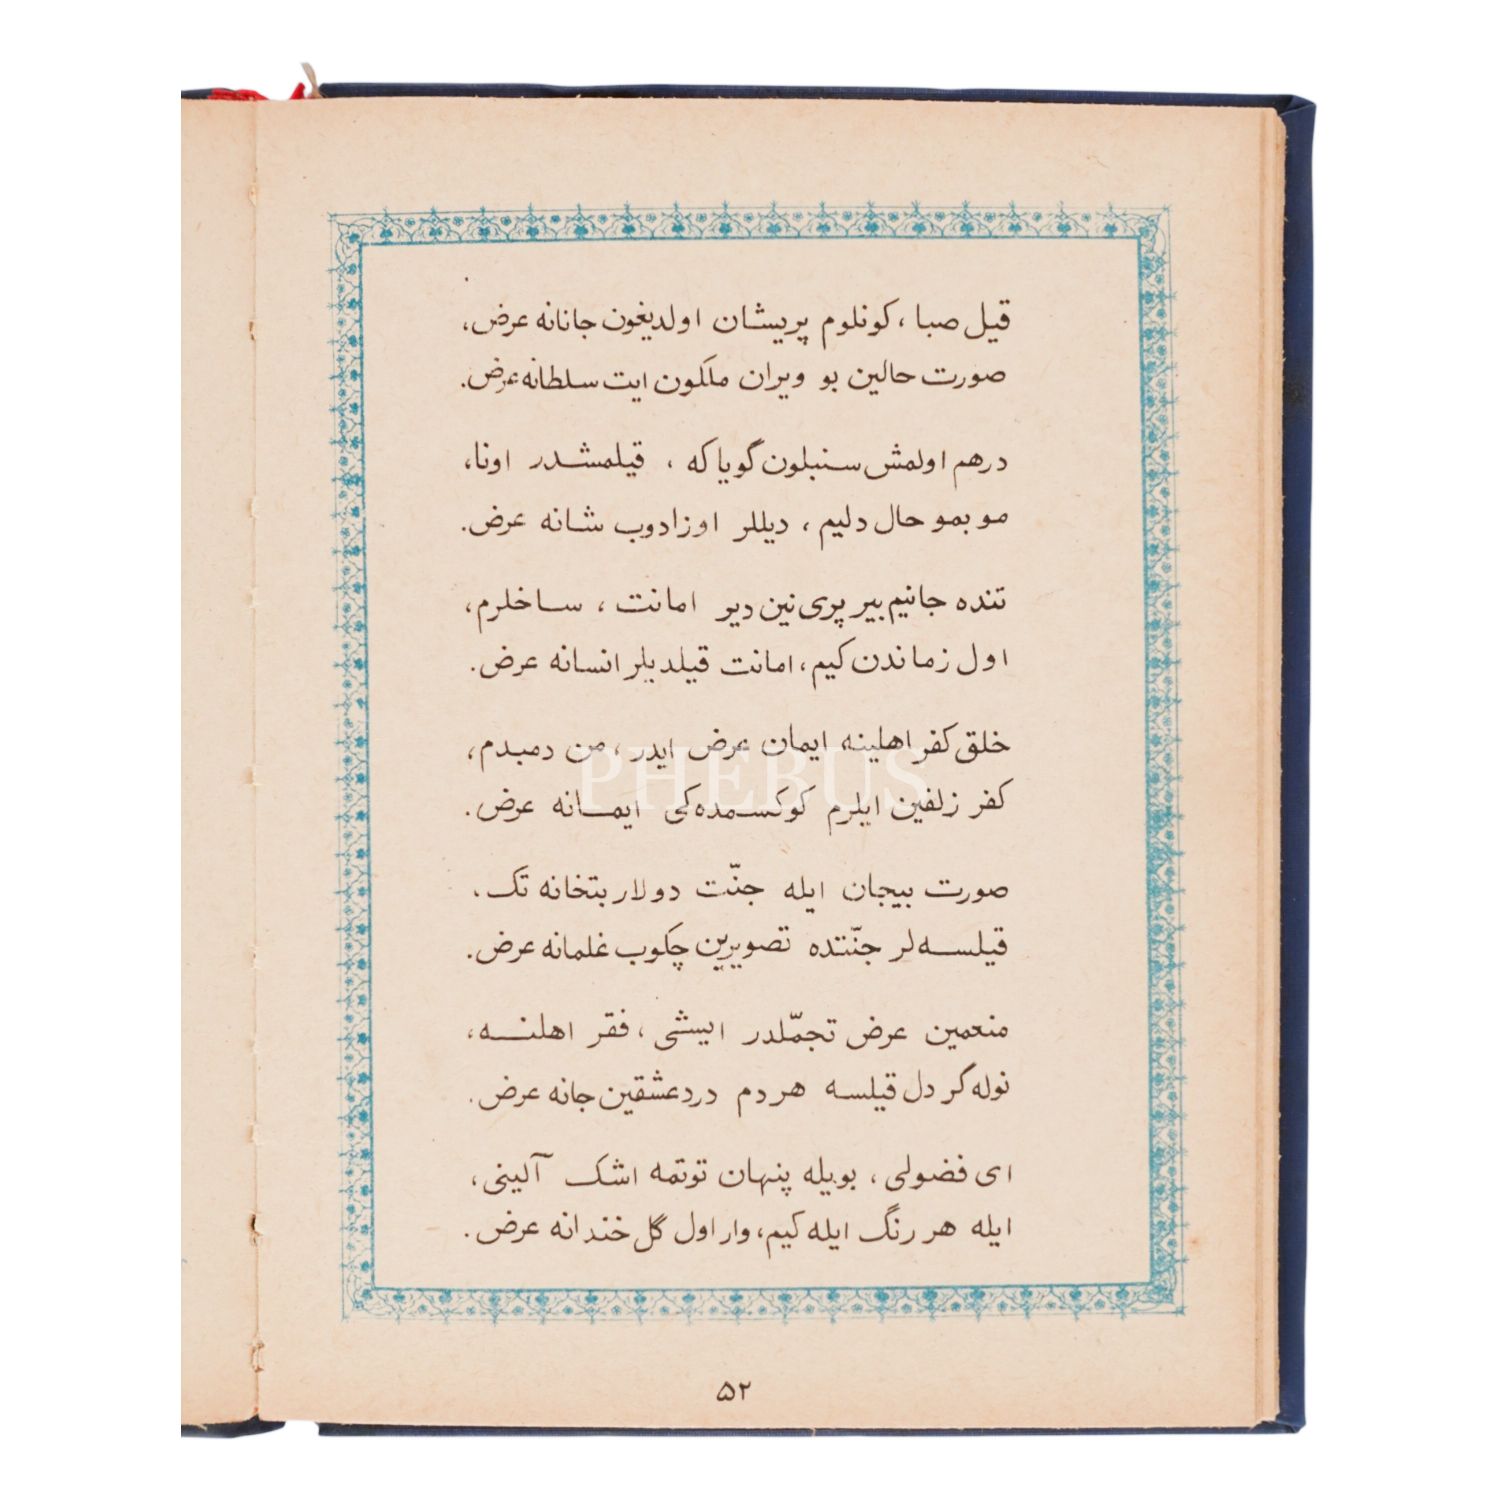 قیل صبا ، کونلوم پریشان اولدیغون جانانه عرض،
صورت حالین بو ویران ملکون ایت سلطانه عرض.
درهم اولمش سنبلون گویا که ، قیلمشدر اونا،
مو بمو حال دلیم ، دیللر اوزادوب شانه عرض.
تنده جانیم بیر پری نین دیر امانت ، ساخلرم،
اول زماندن کیم، امانت قیلدیلر انسانه عرض.
خلق کفر اهلینه ایمان عرض ایدر ، من دمبدم،
کفر زلفین ایلرم کوکسمده کی ایمانه عرض.
صورت بیجان ایله جنّت دولار بتخانه تک،
قیلسه لر جنّتده تصویرین چکوب غلمانه عرض.
منعمین عرض تجمّلدر ایشی ، فقر اهلنه،
نوله گر دل قیلسه هر دم درد عشقین جانه عرض.
ای فضولی ، بویله پنهان توتمه اشک آلینی،
ایله هر رنگ ایله کیم، وار اول گل خندانه عرض.
۵۲
PHEBUS